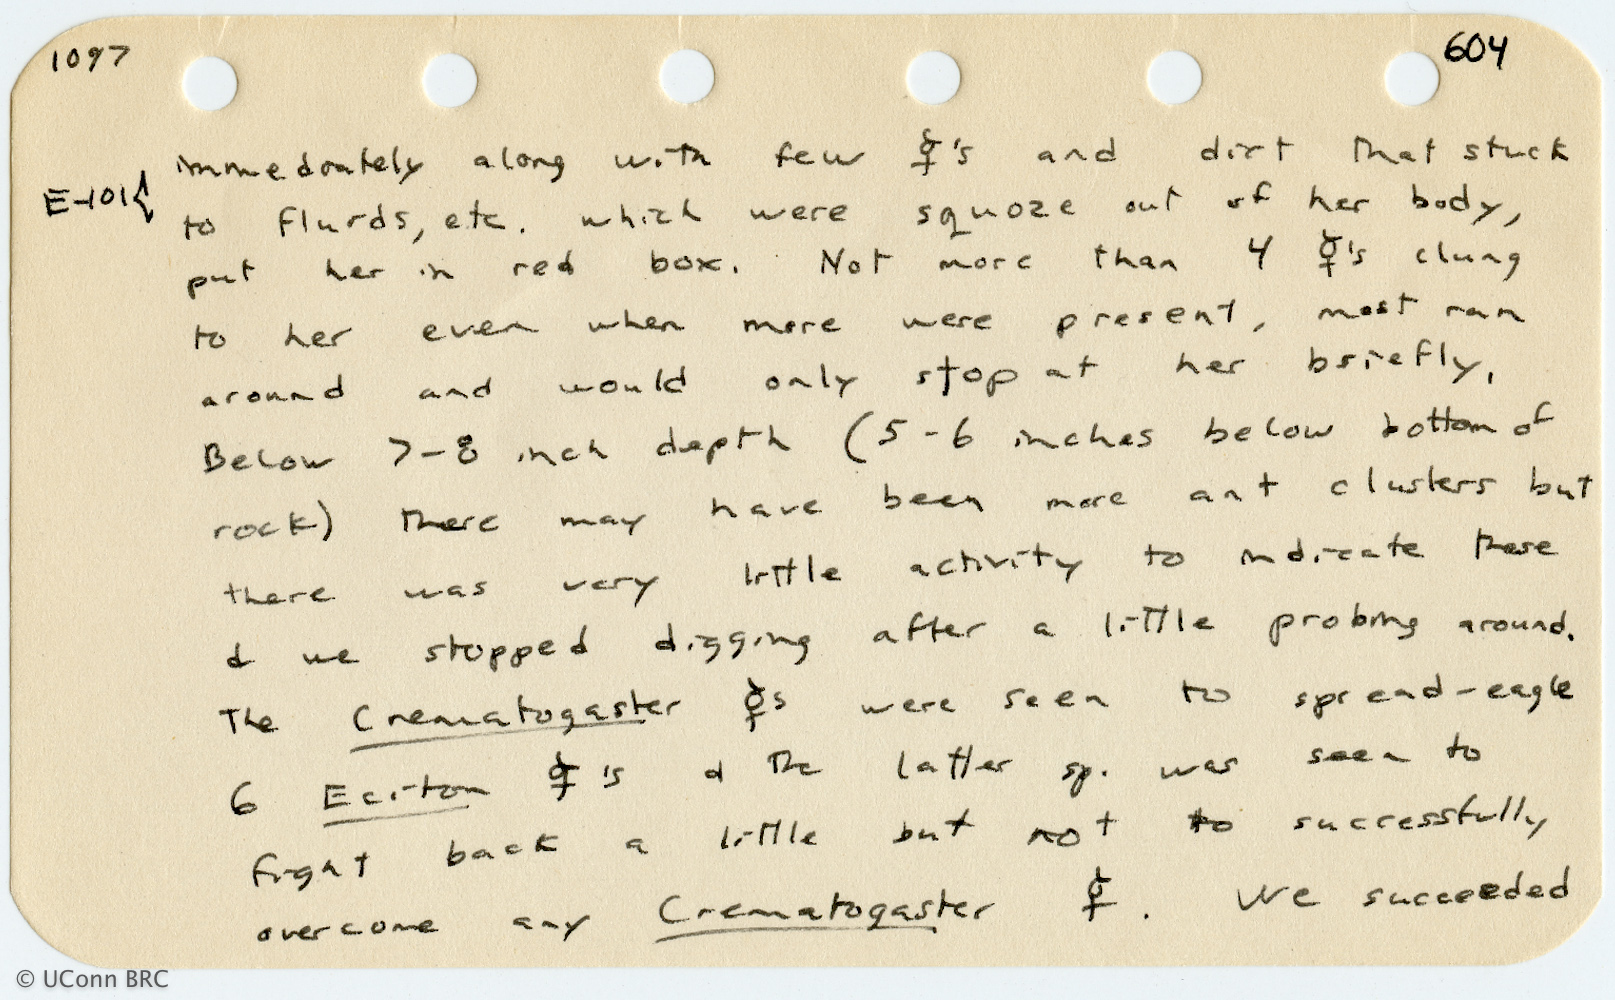 1097
604
E-101{
immediately along with few ☿'s and dirt that stuck
to fluids, etc. which were squoze out of her body,
put her in red box. Not more than 4 ☿'s clung
to her even when more were present, most ran
around and would only stop at her briefly.
Below 7-8 inch depth (5-6 inches below bottom of
rock) there may have been more ant clusters but
there was very little activity to indicate these
& we stopped digging after a little probing around.
The Crematogaster ☿s were seen to spread-eagle
6 Eciton ☿'s & the latter sp. was seen to
fight back a little but not to successfully
overcome any Crematogaster ☿. We succeeded
© UConn BRC